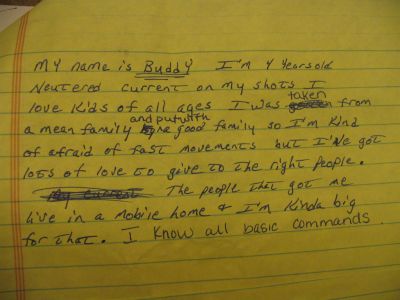 My name is Buddy I'm 4 years old
Neutered current on my shots I
love kids of all ages I was taken from
a mean family and put with a good family so I'm kind
of afraid of fast movements but I've got
lots of love to give to the right people.
My current The people that got me
live in a mobile home & I'm kinda big
for that. I know all basic commands.